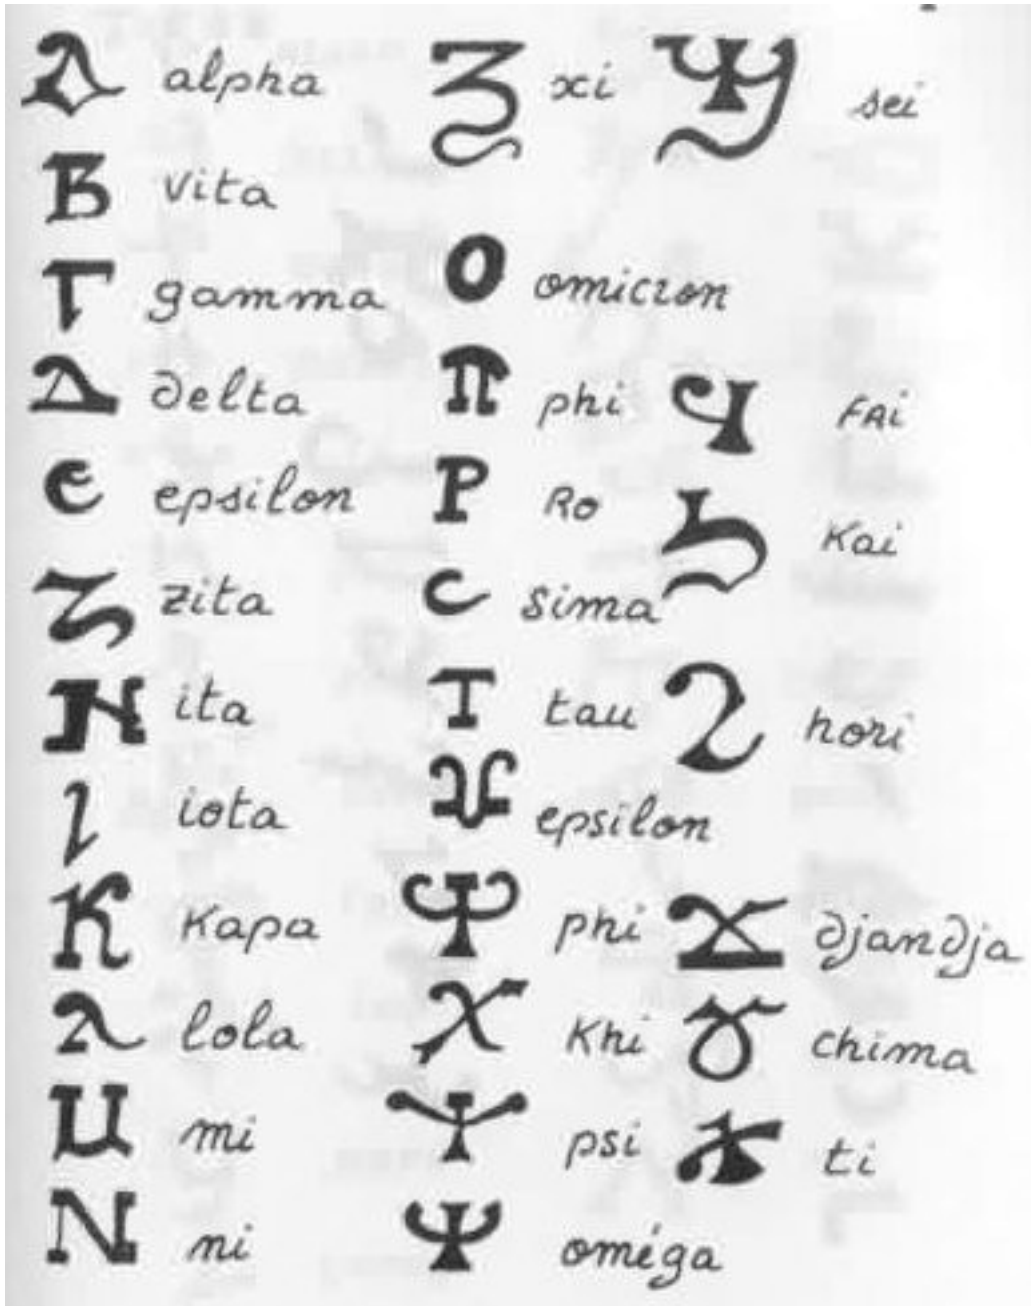 Ⲁ alpha
Ⲃ vita
Ⲅ gamma
Ⲇ delta
Ⲉ epsilon
Ⲍ zita
Ⲏ ita
Ⲓ iota
Ⲕ Kapa
Ⲗ lola
Ⲙ mi
Ⲛ ni
Ⲝ xi
Ⲟ omicron
Ⲡ phi
Ⲣ Ro
Ⲥ sima
Ⲧ tau
Ⲩ epsilon
Ⲫ phi
Ⲭ Khi
Ⲯ psi
Ⲱ oméga
Ϣ sei
Ϥ FAi
Ϧ Kai
Ϩ hori
Ϫ djandja
Ϭ chima
Ϯ ti